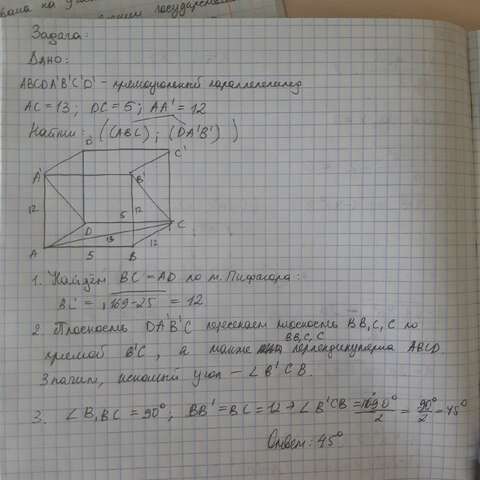 Задача:
Дано:
ABCDA'B'C'D' - прямоугольный параллелепипед
AC = 13; DC = 5; AA' = 12
Найти: ((ABC); (DA'B'))
D' C'
A' B'
12 12
5
D C
13 12
A 5 B
1. Найдём BC = AD по т. Пифагора:
BC = √169-25 = 12
2. Плоскость DA'B'C пересекает плоскость BB,C,C по
прямой B'C, а также BB,C,C перпендикулярна ABCD.
Значит, искомый угол - ∠B'CB.
3. ∠B,BC = 90°; BB' = BC = 12 → ∠B'CB = 90° / 2 = 45°
Ответ: 45°